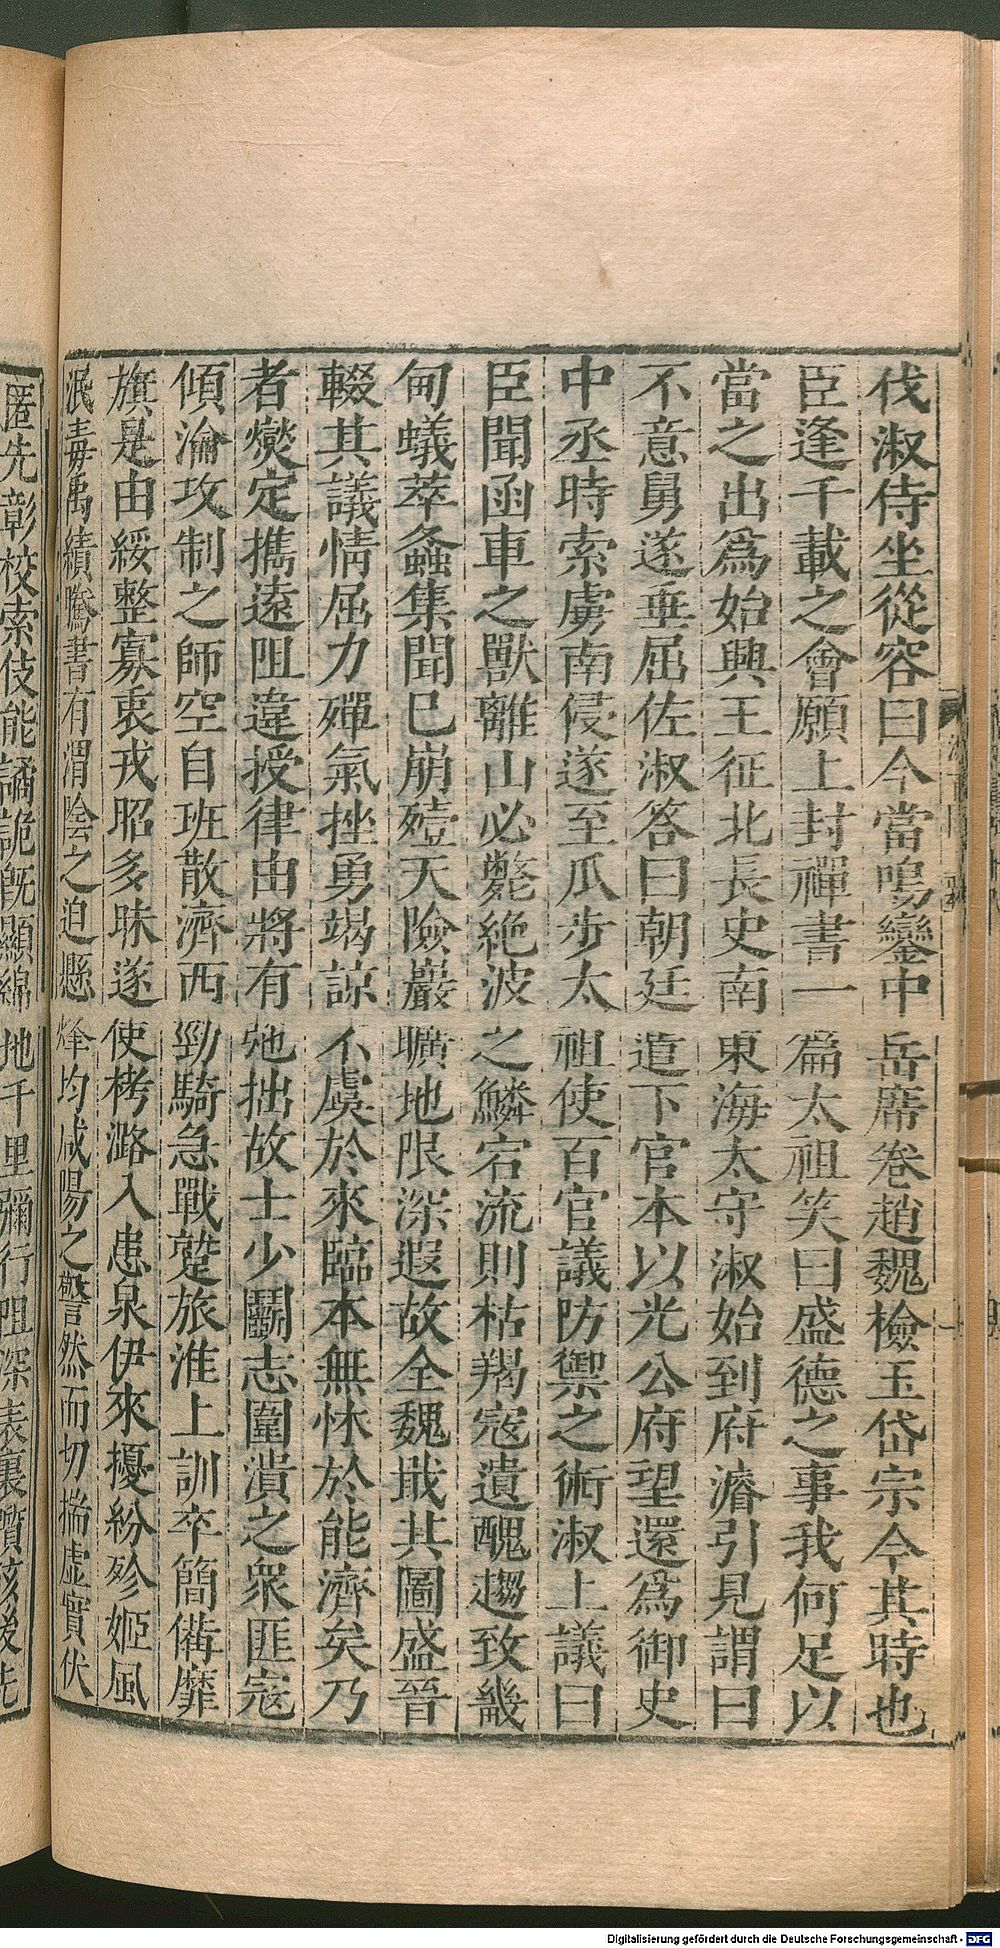 伐淑侍坐從容曰今當鳴鑾中岳席卷趙魏檢玉岱宗今其時也
臣逢千載之會願上封禪書一篇太祖笑曰盛德之事我何足以
當之出爲始興王征北長史南東海太守淑始到府濬引見謂曰
不意舅遂垂屈佐淑答曰朝廷遣下官本以光公府望還爲御史
中丞時索虜南侵遂至瓜步太祖使百官議防禦之術淑上議曰
臣聞函車之獸離山必斃絶波之鱗宕流則枯羯寇遺醜趨致畿
甸蟻萃螽集聞巳崩殪天險巖曠地限深遐故全魏戢其圖盛晉
輟其議情屈力殫氣挫勇竭諒不虞於來臨本無怵於能濟矣乃
者燮定攜遠阻違授律由將有弛拙故士少鬭志圍潰之衆匪寇
傾淪攻制之師空自班散濟西勁騎急戰蹵旅淮上訓卒簡備靡
旗是由綏整寡衷戎昭多昧遂使栲潞入患泉伊來擾紛殄姬風
泯毒禹績騰書有渭陰之迫懸烽均咸陽之警然而切揣虛實伏
匿先彰校索伎能譎詭旣顯綿地千里彌行阻深表裏躓後先
Digitalisierung gefördert durch die Deutsche Forschungsgemeinschaft - DFG